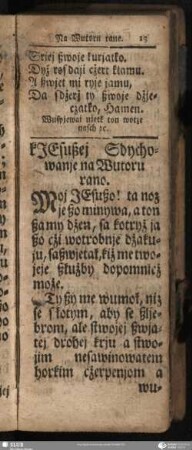 Na Wutoru rano. 15
Srjej ßwoje kurjatko.
Dyž rosdaji czert klamu.
A ßwjet mi ryje jamu,
Da sdžerž ty ßwoje džje-
czatko, Hamen.
Wuspjewal njek ton wotze
nasch ꝛc.
kJEsußej Sdycho-
wanje na Wutoru
rano.
Moj JEsußo! ta noz
je ßo minywa, a ton
ßamy džen, sa kotryž ja
ßo czi wotrobnje džaku-
ju, saßwjetal, kiž me two-
jeje ßkužby dopomnicž
može.
Ty ßy me wumok, niz
se slotym, aby se ßlje-
brom, ale stwojej ßwja-
tej drohej krju a stwo-
jim nesawinowatem
horkim czerpenjom a
wu-